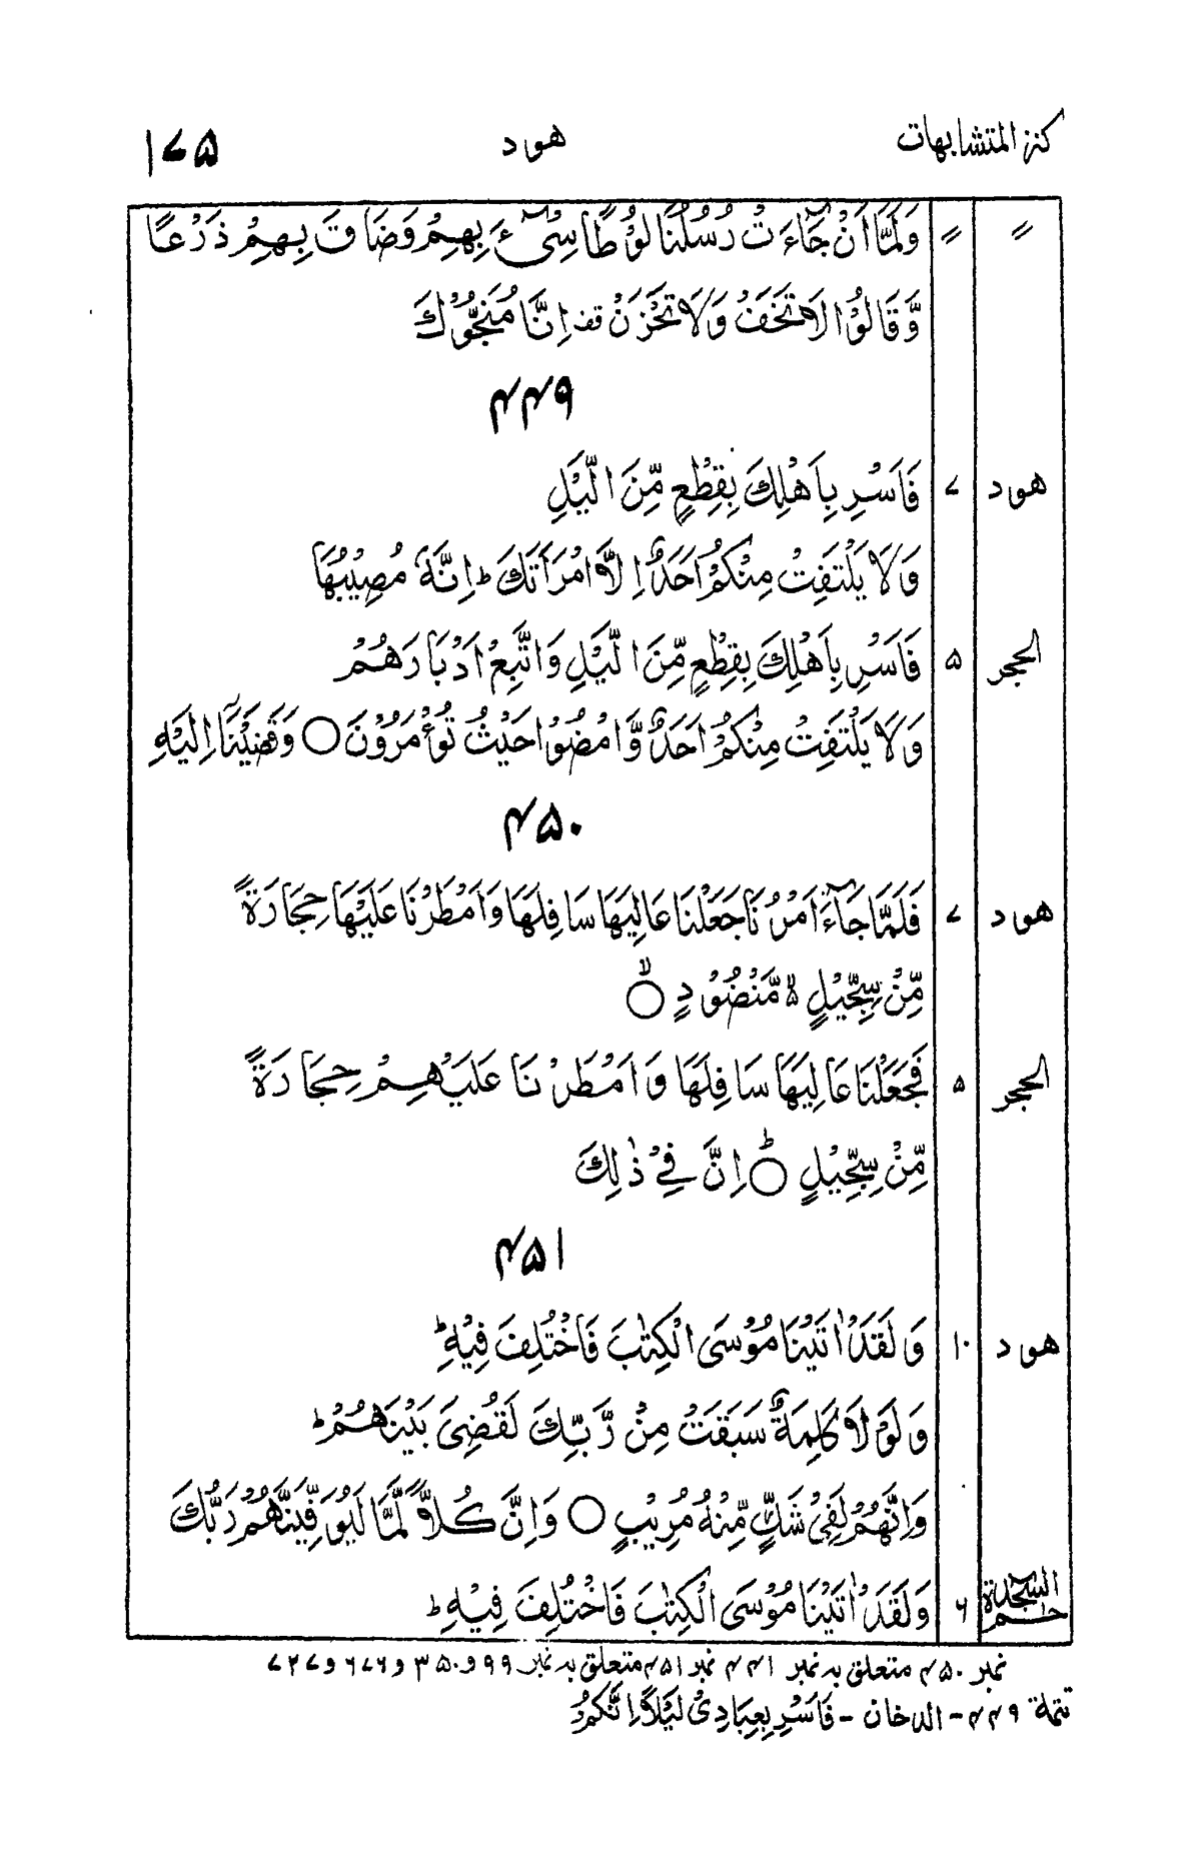 كنز المتشابهات هود ۱۷۵
〃 〃 وَلَمَّآ اَنْ جَآءَتْ رُسُلُنَا لُوْطًا سِیْٓءَ بِهِمْ وَضَاقَ بِهِمْ ذَرْعًا
وَّقَالُوْا لَا تَخَفْ وَلَا تَحْزَنْ قف اِنَّا مُنَجُّوْكَ
۴۴۹
هود ۷ فَاَسْرِ بِاَهْلِكَ بِقِطْعٍ مِّنَ الَّیْلِ
وَلَا یَلْتَفِتْ مِنْكُمْ اَحَدٌ اِلَّا امْرَاَتَكَ ؕ اِنَّهٗ مُصِیْبُهَا
الحجر ۵ فَاَسْرِ بِاَهْلِكَ بِقِطْعٍ مِّنَ الَّیْلِ وَاتَّبِعْ اَدْبَارَهُمْ
وَلَا یَلْتَفِتْ مِنْكُمْ اَحَدٌ وَّامْضُوْا حَیْثُ تُؤْمَرُوْنَ ○ وَقَضَیْنَآ اِلَیْهِ
۴۵۰
هود ۷ فَلَمَّا جَآءَ اَمْرُنَا جَعَلْنَا عَالِیَهَا سَافِلَهَا وَاَمْطَرْنَا عَلَیْهَا حِجَارَةً
مِّنْ سِجِّیْلٍ ۙ مَّنْضُوْدٍ ○ۙ
الحجر ۵ فَجَعَلْنَا عَالِیَهَا سَافِلَهَا وَاَمْطَرْنَا عَلَیْهِمْ حِجَارَةً
مِّنْ سِجِّیْلٍ ○ؕ اِنَّ فِیْ ذٰلِكَ
۴۵۱
هود ۱۰ وَلَقَدْ اٰتَیْنَا مُوْسَی الْكِتٰبَ فَاخْتُلِفَ فِیْهِ ؕ
وَلَوْلَا كَلِمَةٌ سَبَقَتْ مِنْ رَّبِّكَ لَقُضِیَ بَیْنَهُمْ ؕ
وَاِنَّهُمْ لَفِیْ شَكٍّ مِّنْهُ مُرِیْبٍ ○ وَاِنَّ كُلًّا لَّمَّا لَیُوَفِّیَنَّهُمْ رَبُّكَ
حٰم السجدة ۶ وَلَقَدْ اٰتَیْنَا مُوْسَی الْكِتٰبَ فَاخْتُلِفَ فِیْهِ ؕ
نمبر ۴۵۰ متعلق به نمبر ۴۴۱ نمبر ۴۵۱ متعلق به نمبر ۹۹ و ۳۵۰ و ۶۷۶ و ۷۲۷
تتمة ۴۴۹ - الدخان - فَاَسْرِ بِعِبَادِیْ لَیْلًا اِنَّكُمْ